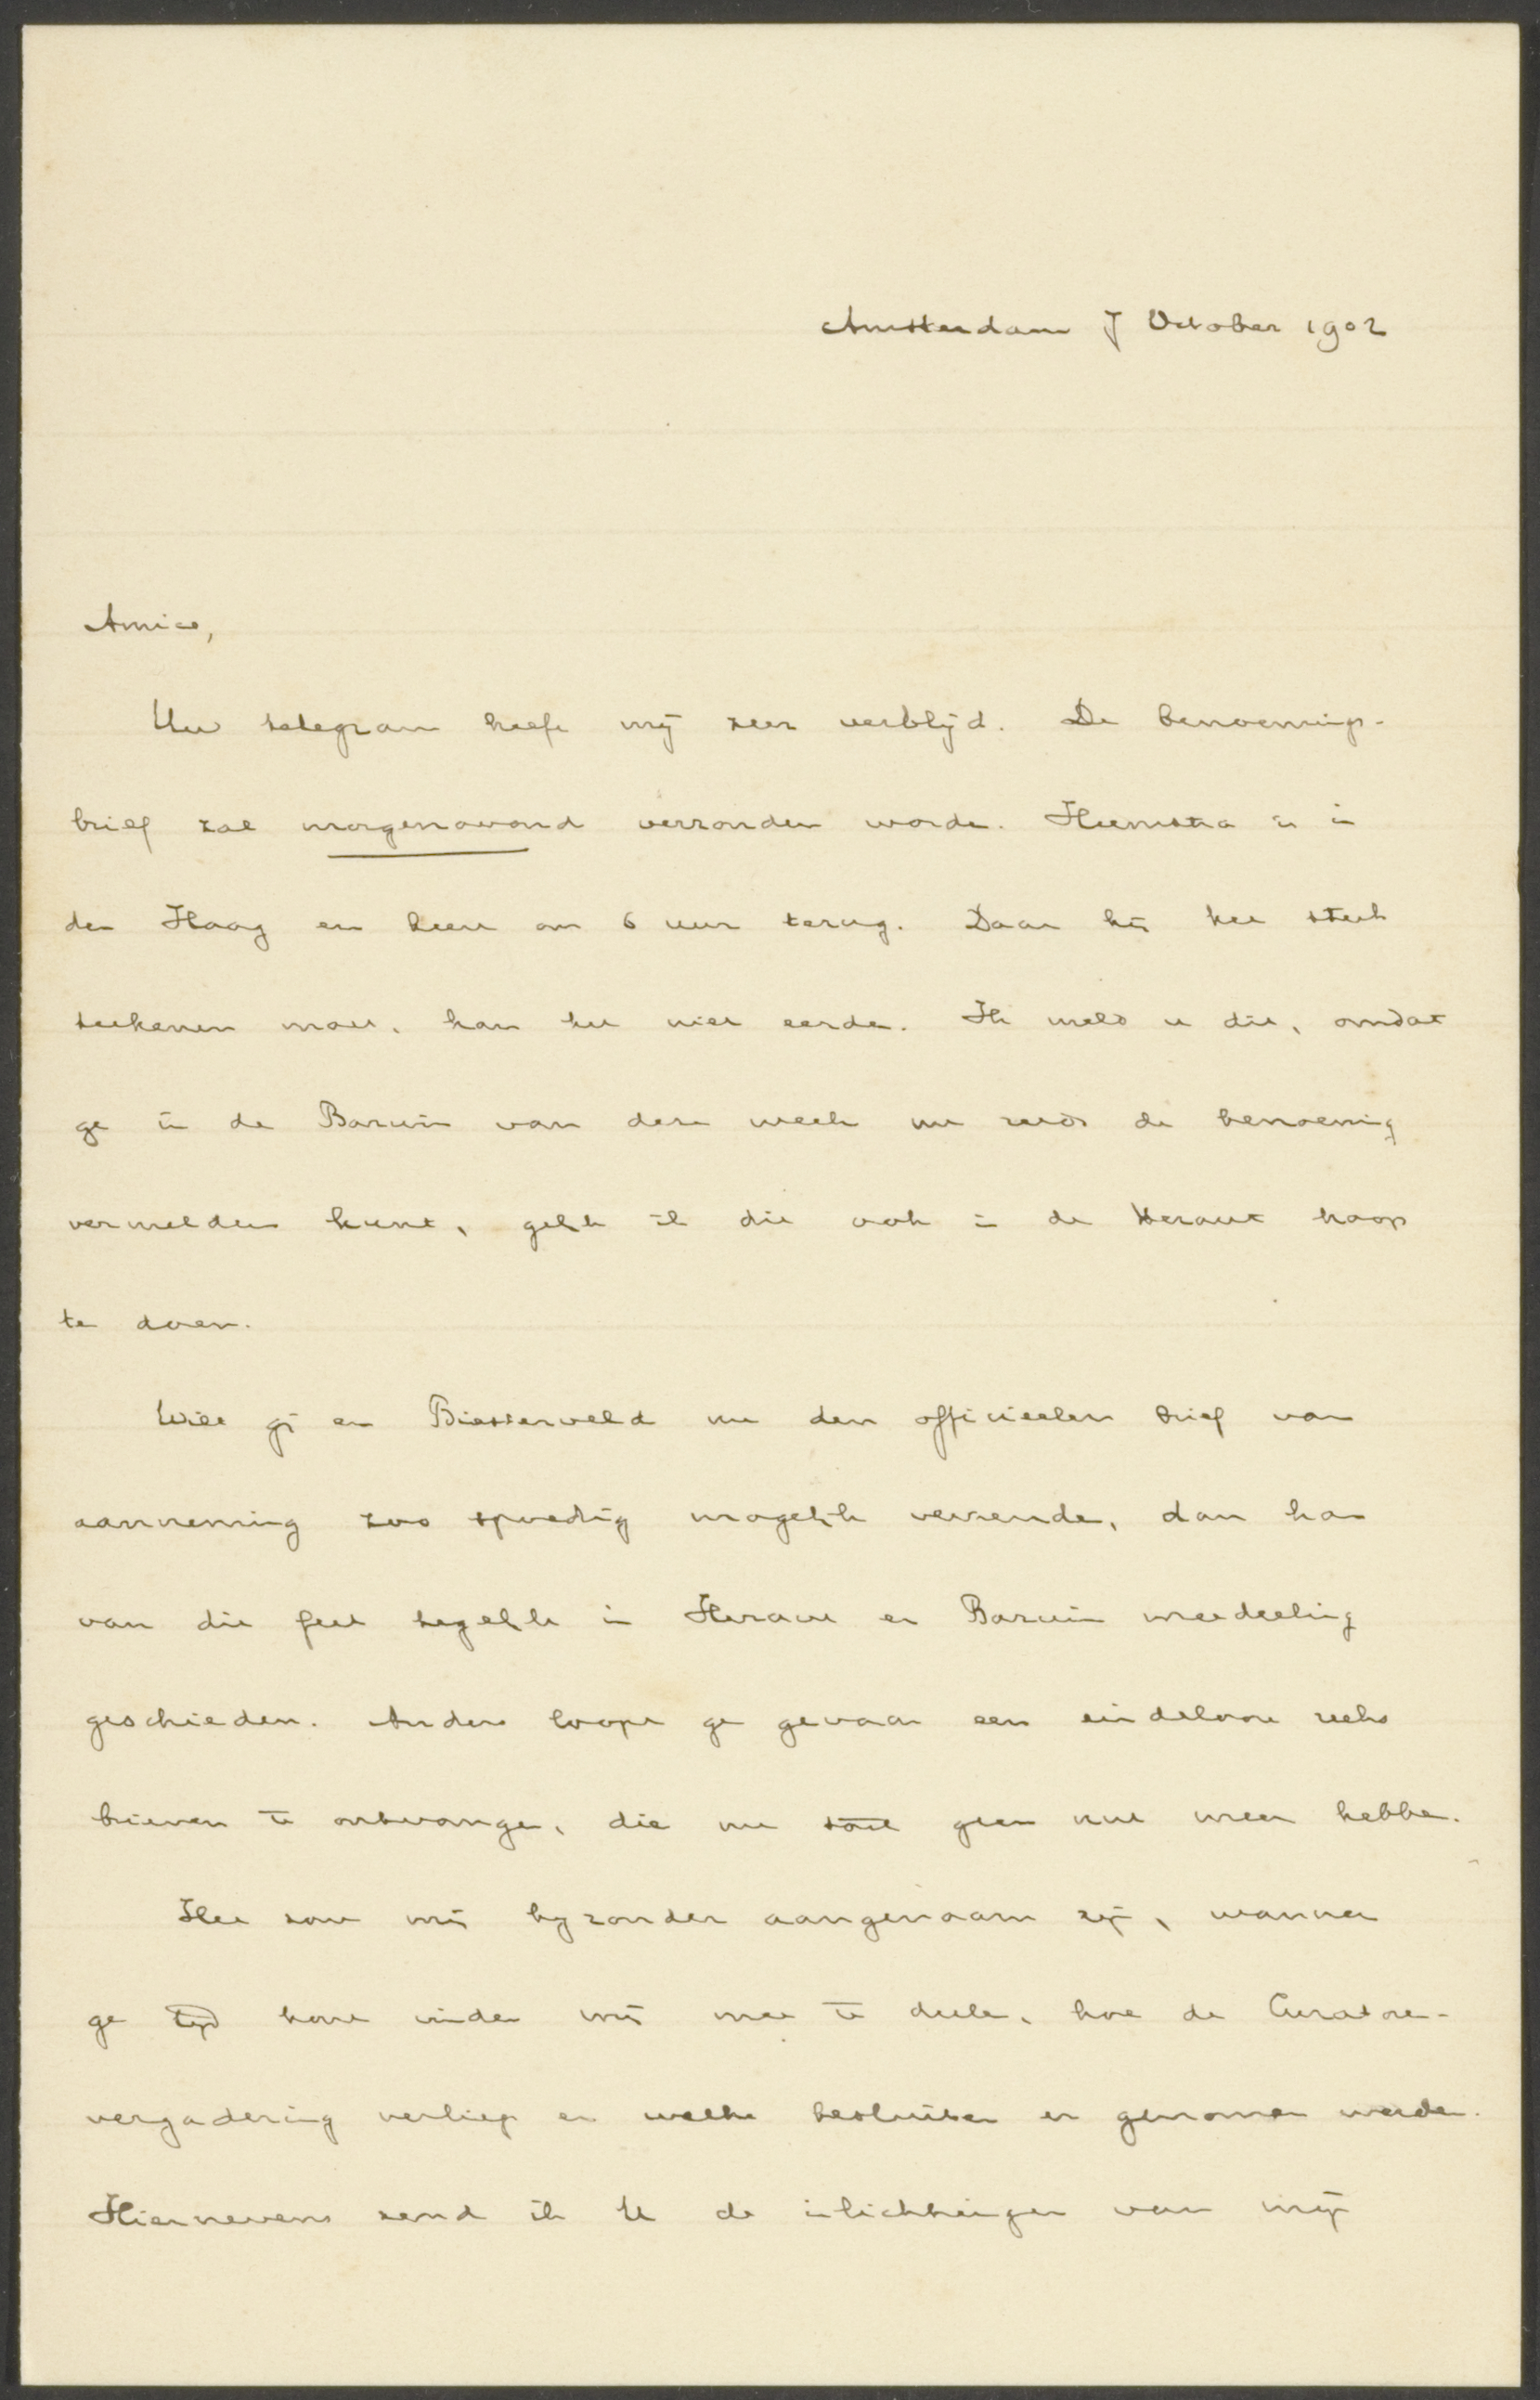 Amsterdam 7 October 1902
Amice,
Uw telegram heeft mij zeer verblijd. De benoemings-
brief zal morgenavond verzonden worden. Heemstra is in
den Haag en keert om 6 uur terug. Daar hij het stuk
teekenen moet, kan het niet eerder. Ik meld u dit, omdat
ge in de Bazuin van deze week nu reeds de benoeming
vermelden kunt, gelijk ik dit ook in de Heraut hoop
te doen.
Wilt gij en Biesterveld nu den officieelen brief van
aanneming zoo spoedig mogelijk verzenden, dan kan
van dit feit tegelijk in Heraut en Bazuin meedeeling
geschieden. Anders loopt ge gevaar een eindelooze reeks
brieven te ontvangen, die nu toch geen nut meer hebben.
Het zou mij byzonder aangenaam zijn, wanneer
ge tijd kont vinden mij mee te deelen, hoe de Curatoren-
vergadering verliep en welke besluiten er genomen werden.
Hiernevens zend ik U de inlichtingen van mijn